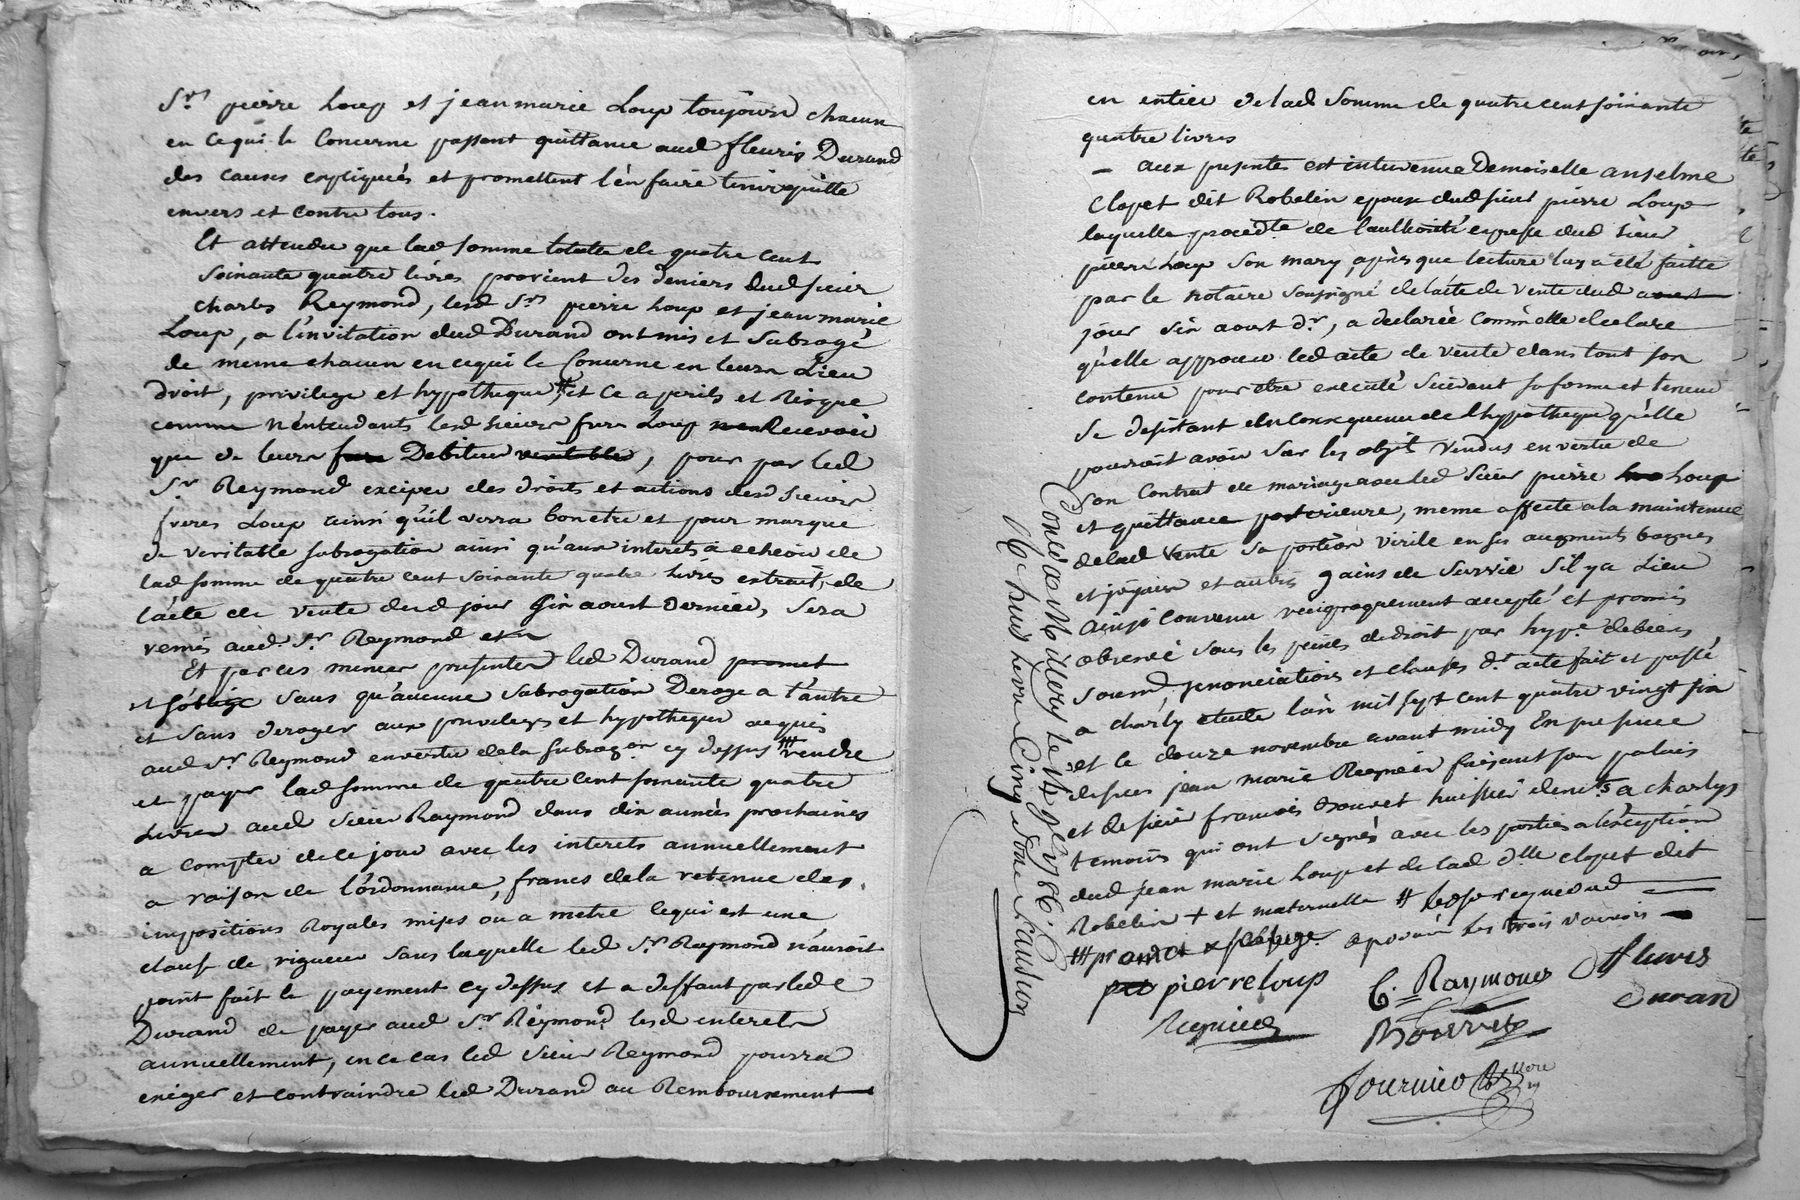 Srs pierre Loup et jean marie Loup toujours chacun
en ce qui le Concerne passent quittance aud fleuris Durand
des causes expliquées et promettent l'en faire tenir quitte
envers et contre tous.
Et attendu que lad somme totalle de quatre cent
soixante quatre livres provient des deniers dud sieur
charles Reymond, lesd Srs pierre Loup et jean marie
Loup, a l'invitation dud Durand ont mis et subrogé
de meme chacun en ce qui le Concerne en leurs Lieu
droit, privilege et hypotheque # et ce a perils et Risque
comme n'entendants lesd sieurs frere Loup recevoir
que de leurs Debiteur, pour par led
Sr Reymond exciper des droits et actions desd sieurs
freres Loup ainsi qu'il verra bon etre et pour marque
de veritable subrogation ainsi qu'aux interets a echeoir de
lad somme de quatre cent soixante quatre livres extrait de
l'acte de vente dud jour six aoust dernier, sera
remis aud. Sr Reymond
Et par ces memes presentes led Durand promet
et s'oblige sans qu'aucune subrogation Deroge a l'autre
et sans deroger aux privileges et hypotheque acquis
aud Sr Reymond en vertu de la subrogon cy dessus ### rendre
et payer lad somme de quatre cent soixante quatre
Livres aud sieur Raymond dans dix années prochaines
a compter de ce jour avec les interets annuellement
a raison de l'ordonnance, francs de la retenue des
impositions Royales mises ou a metre ce qui est une
clause de rigueur sans laquelle led Sr Raymond n'auroit
point fait le payement cy dessus et a deffaut par led
Durand de payer aud Sr Reymond lesd interets
annuellement, en ce cas led sieur Reymond pourra
exiger et contraindre led Durand au Remboursement
en entier de lad somme de quatre cent soixante
quatre livres
— aux presentes est intervenue Demoiselle anselme
Clopet dit Robelin epouse dud sieur pierre Loup
laquelle procedte de l'authorité expresse dud sieur
pierre Loup son mary, après que lecture luy a été faitte
par le notaire soussigné de l'acte de vente dud
jour six aoust dr, a declarée comme elle declare
qu'elle approuve led acte de vente dans tout son
contenu pour etre executé suivant sa forme et teneur
se desistant en consequence de l'hypotheque qu'elle
pouvoit avoir sur les objets vendus en vertu de
son Contrat de mariage avec led sieur pierre Loup
et quittance posterieure, meme affecte a la maintenue
de lad vente sa portion virile en ses augments bagues
et joyaux et autres gains de survie s'il y a Lieu
ainsi convenu reciproquement accepté et promis
observé sous les peines de droit par hype. de biens
soumd, renonciations et clauses dt acte fait et passé
a charly etude l'an mil sept cent quatre vingt six
et le douze novembre avant midy En presence
de sieur jean marie Regnier faisant son palais
et de sieur francois Bouvet huissier demts a charly
temoins qui ont signés avec les parties a l'exception
dud jean marie Loup et de lad dlle clopet dit
Robelin + et maternelle # led sr reymond
### promet et s'oblige. approuvé les trois renvois —
pierre loup C. Raymond fleuris
Regnier Durand
Fournier
Conlé a Millery le